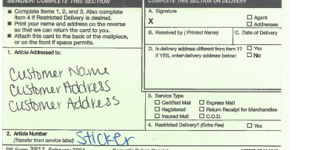 SENDER: COMPLETE THIS SECTION
■ Complete items 1, 2, and 3. Also complete
item 4 if Restricted Delivery is desired.
■ Print your name and address on the reverse
so that we can return the card to you.
■ Attach this card to the back of the mailpiece,
or on the front if space permits.
1. Article Addressed to:
Customer Name
Customer Address
Customer Address
2. Article Number
(Transfer from service label)
Sticker
PS Form 3811, February 2004
COMPLETE THIS SECTION ON DELIVERY
A. Signature
X
□ Agent
□ Addressee
B. Received by (Printed Name)
C. Date of Delivery
D. Is delivery address different from item 1? □ Yes
If YES, enter delivery address below: □ No
3. Service Type
□ Certified Mail □ Express Mail
□ Registered □ Return Receipt for Merchandise
□ Insured Mail □ C.O.D.
4. Restricted Delivery? (Extra Fee) □ Yes